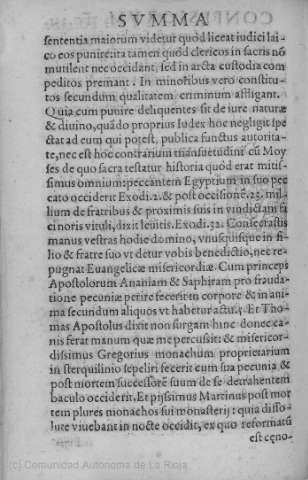 SVMMA
sententia maiorum videtur quòd liceat iudici lai-
co eos punire: ita tamen quòd clericos in sacris nō
mutilent nec occidant, sed in arcta custodia com
peditos premant. In minoribus vero constitu-
tos secundum qualitatem criminum affligant.
Quia cum punire deliquentes sit de iure naturæ
& diuino, quādo proprius Iudex hoc negligit spe
ctat ad eum qui potest, publica functus autorita-
te, nec est hoc contrarium mansuetudini cū Moy
ses de quo sacra testatur historia quòd erat mitis-
simus omnium: peccantem Egyptium in suo pec
cato occiderit Exodi.2. & post occisionē.23. mil-
lium de fratribus & proximis suis in vindictam fa
cinoris vituli, dixit leuitis. Exodi.32. Consecrastis
manus vestras hodie domino, vnusquisque in fi-
lio & fratre suo vt detur vobis benedictio, nec re-
pugnat Euangelicæ misericordiæ. Cum princeps
Apostolorum Ananiam & Saphiram pro frauda-
tione pecuniæ perire fecerit in corpore & in ani-
ma secundum aliquos vt habetur act. 5. Et Tho-
mas Apostolus dixit non surgam hinc donec ca-
nis ferat manum quæ me percussit: & misericor-
dissimus Gregorius monachum proprietarium
in sterquilinio sepeliri fecerit cum sua pecunia &
post mortem successorē suum de se detrahentem
baculo occiderit. Et pijssimus Martinus post mor
tem plures monachos sui monasterij: quia disso-
lute viuebant in nocte occidit, ex quo reformatū
est cœno-
(c) Comunidad Autónoma de La Rioja